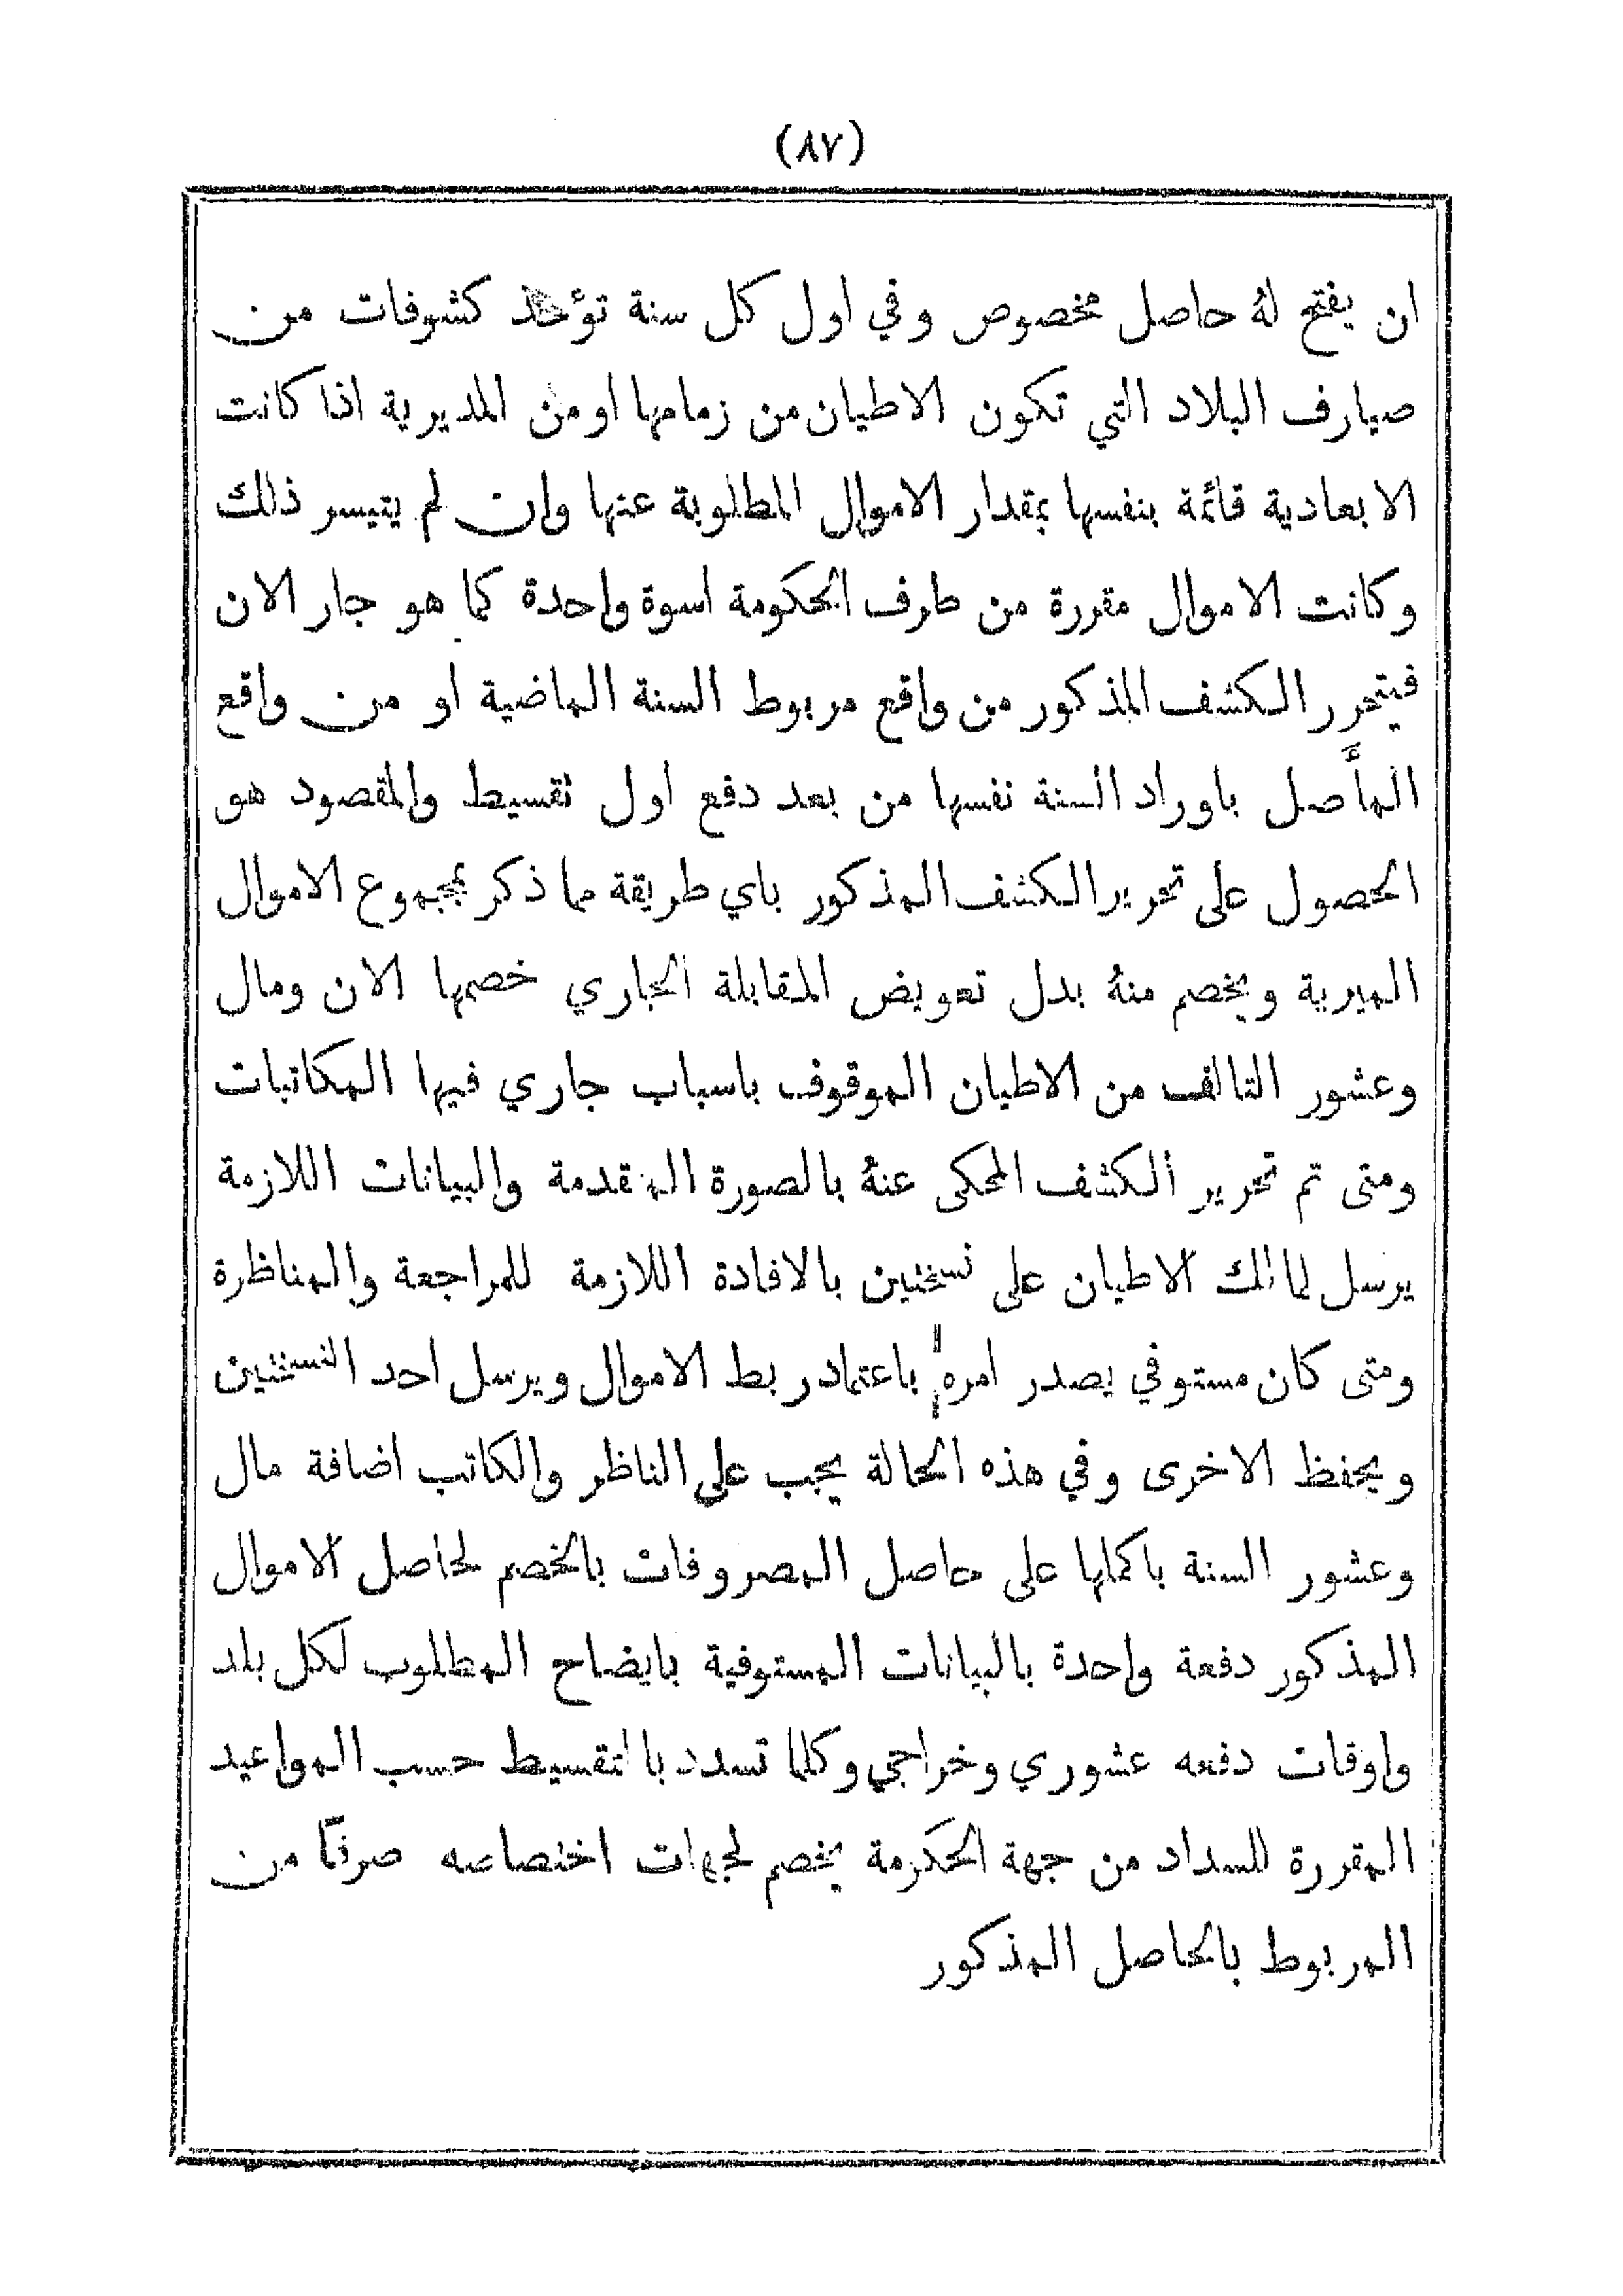 (٨٧)
ان يفتح لهُ حاصل مخصوص وفي اول كل سنة تؤخذ كشوفات من
صيارف البلاد التي تكون الاطيان من زمامها او من المديرية اذا كانت
الابعادية قائمة بنفسها بمقدار الاموال المطلوبة عنها وان لم يتيسر ذلك
وكانت الاموال مقررة من طرف الحكومة اسوة واحدة كما هو جار الان
فيتحرر الكشف المذكور من واقع مربوط السنة الماضية او من واقع
المأَصل باوراد السنة نفسها من بعد دفع اول تقسيط والمقصود هو
الحصول على تحرير الكشف المذكور باي طريقة مما ذكر بمجموع الاموال
الميرية ويخصم منهُ بدل تعويض المقابلة الجاري خصمها الان ومال
وعشور التالف من الاطيان الموقوف باسباب جاري فيها المكاتبات
ومتى تم تحرير الكشف المحكى عنهُ بالصورة المتقدمة والبيانات اللازمة
يرسل لمالك الاطيان على نسختين بالافادة اللازمة للمراجعة والمناظرة
ومتى كان مستوفي يصدر امره باعتماد ربط الاموال ويرسل احد النسختين
ويحفظ الاخرى وفي هذه الحالة يجب على الناظر والكاتب اضافة مال
وعشور السنة باكملها على حاصل المصروفات بالخصم لحاصل الاموال
المذكور دفعة واحدة بالبيانات المستوفية بايضاح المطلوب لكل بلد
واوقات دفعه عشوري وخراجي وكلما تسدد بالتقسيط حسب المواعيد
المقررة للسداد من جهة الحكومة يخصم لجهات اختصاصه صرفًا من
المربوط بالحاصل المذكور